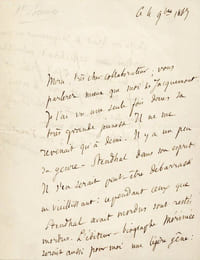 Ce 4 9bre 1869
Mon très cher collaborateur, vous
parlerez mieux que moi de Jacquemont.
Je l'ai vu une seule fois dans sa
très grande jeunesse. Il ne me
revenait qu'à demi. Il y a un peu
du genre Stendhal dans son esprit
Il s'en serait peut être débarrassé
en vieillissant : cependant ceux que
Stendhal avait mordus sont restés
mordus. L'éditeur-biographe Mérimée
serait aussi pour moi une légère gêne.